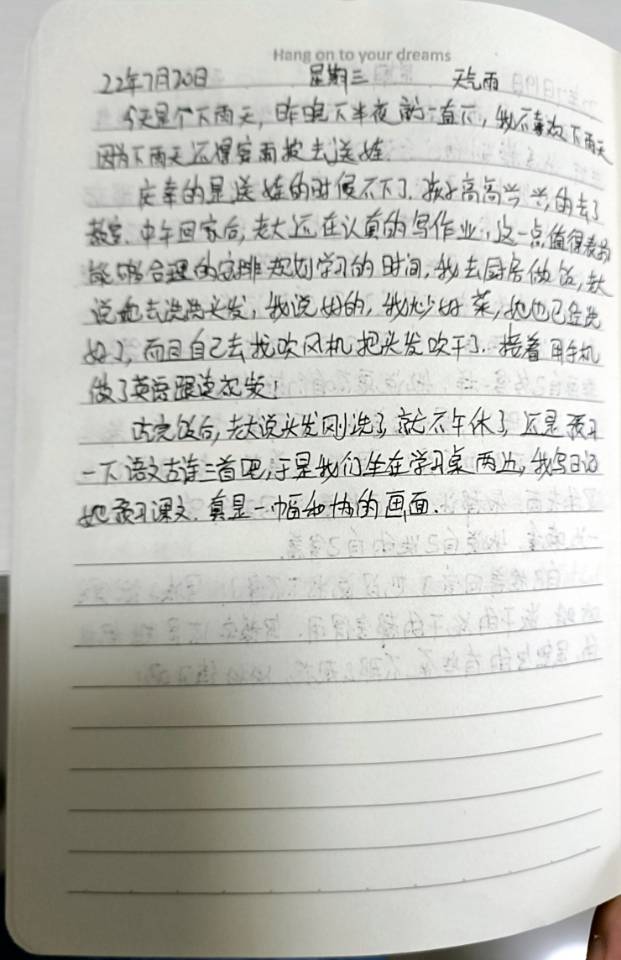 Hang on to your dreams
22年7月20日 星期三 天气雨
今天是个下雨天,昨晚下半夜就一直下,我不喜欢下雨天
因为下雨天还得穿雨披去送娃.
庆幸的是送娃的时候不下了.孩子高高兴兴的去了
教室.中午回家后,老大还在认真的写作业,这一点值得表扬
能够合理的安排规划学习的时间,我去厨房做饭,老大
说她去洗洗头发,我说好的,我炒好菜,她也已经洗
好了,而且自己去找吹风机把头发吹干了.接着用手机
做了英语跟读视频!
吃完饭后,老大说头发刚洗了,就不午休了,还是预习
一下语文古诗三首吧,于是我们坐在学习桌两边,我写日记
她预习课文.真是一幅和协的画面.